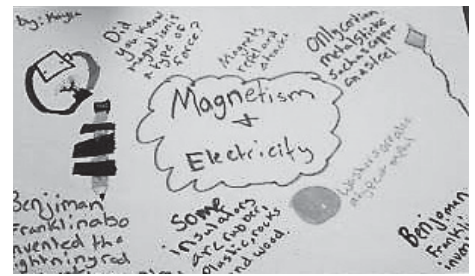 by: Kayla
Did
you know
magnetism is
a type of
force?
Magnets
repel and
attract
Only certian
metals stick
such as copper
and steel
Magnetism
+
Electricity
Benjiman
Franklin also
invented the
lightning rod
Some
insulators
are rubber,
plastic, rocks
and wood.
Benjaman
Frankl
inven